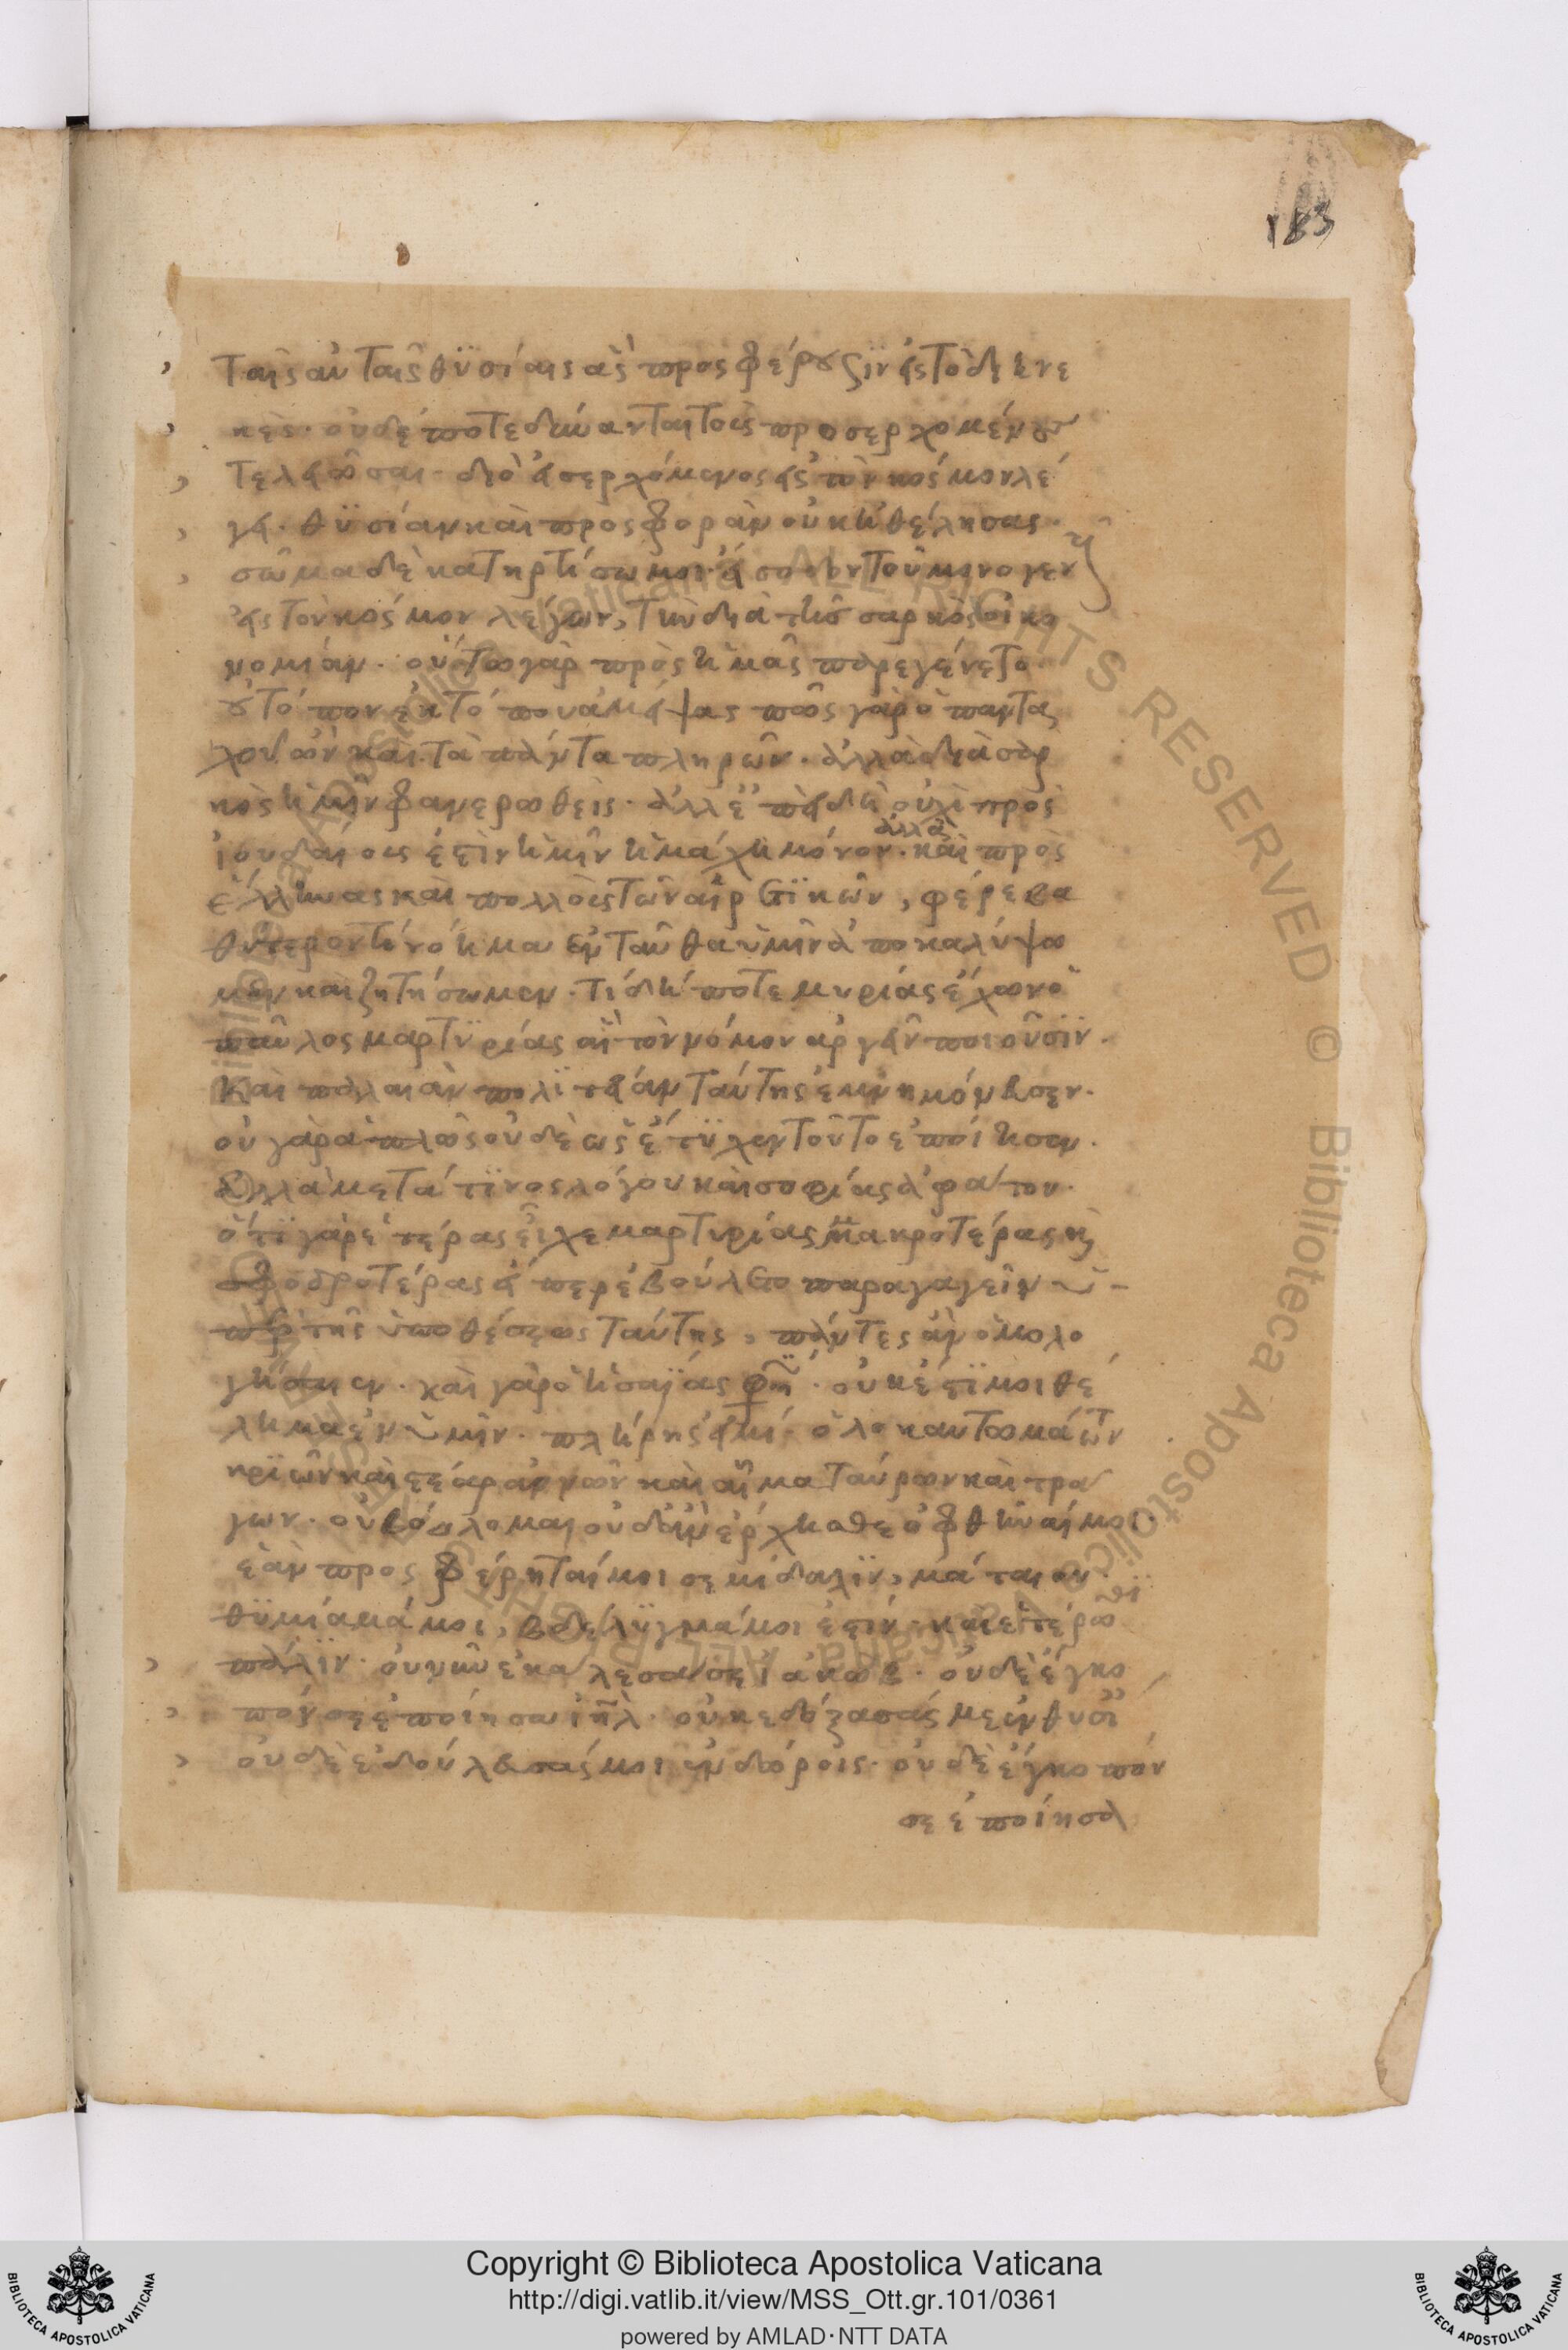 183
ταῖς αὐταῖς θϋσίαις ἃς προσφέρουσϊν εἰς τὸ διηνε
κὲς· οὐδέποτε δύνανται τοὺς προσερχομένους
τελειῶσαι· διὸ εἰσερχόμενος εἰς τὸν κόσμον λέ
γει· θϋσίαν καὶ προσφορὰν οὐκ ἠθέλησας·
σῶμα δὲ κατηρτίσω μοι· εἴσοδον τοῦ μονογενοῦς
εἰς τὸν κόσμον λέγων, τὴν διὰ τῆς σαρκὸς οἰκο
νομίαν· οὕτω γὰρ πρὸς ἡμᾶς παρεγένετο
οὐ τόπον ἐκ τόπου ἀμείψας πῶς γὰρ ὁ πανταχοῦ
ὢν καὶ τὰ πάντα πληρῶν· ἀλλὰ διὰ σαρ
κὸς ἡμῖν φανερωθεὶς· ἀλλ' ἐπειδὴ οὐχὶ πρὸς
ἰουδαίους ἐστὶν ἡμῖν ἡ μάχη μόνον· ἀλλὰ καὶ πρὸς
ἕλληνας καὶ πολλοὺς τῶν αἱρετϊκῶν, φέρε βα
θύτερόν τι νόημα ἐνταῦθα ὑμῖν ἀποκαλύψω
μεν καὶ ζητήσωμεν· τί δήποτε μυρίας ἔχων ὁ
παῦλος μαρτϋρίας αἳ τὸν νόμον ἀργεῖν ποιοῦσϊν·
καὶ παλαιὰν πολϊτείαν ταύτης ἐμνημόνευσεν·
οὐ γὰρ ἁπλῶς οὐδὲ ὡς ἔτϋχεν τοῦτο ἐποίησεν·
ἀλλὰ μετά τϊνος λόγου καὶ σοφίας ἀφάτου·
ὅτϊ γὰρ ἑτέρας εἶχε μαρτυρίας μακροτέρας καὶ
σφοδροτέρας εἴπερ ἐβούλετο παραγαγεῖν ὑ-
πὲρ τῆς ὑποθέσεως ταύτης, πάντες ἂν ὁμολο
γήσαιεν· καὶ γὰρ ὁ ἡσαΐας φησὶ· οὐκ ἔστϊ μοι θέ
λημα ἐν ὑμῖν· πλήρης εἰμί· ὁλοκαυτωμάτων
κρϊῶν καὶ στέαρ ἀρνῶν καὶ αἷμα ταύρων καὶ τρά
γων· οὐ βούλομαι οὐδ' ἂν ἔρχησθε ὀφθῆναί μοι·
ἐὰν προσφέρηταί μοι σεμίδαλϊν, μάταιον·
θϋμίαμά μοι, βδέλϋγμά μοι ἐστίν· καὶ ἑτέρωθϊ
πάλϊν· οὐ νῦν ἐκάλεσά σε ἰακώβ· οὐδὲ ἔγκο
πόν σε ἐποίησα ἰηλ· οὐκ ἐδόξασάς με ἐν θυσϊ
οὐδὲ ἐδούλευσάς μοι ἐν δώροις· οὐδὲ ἔγκοπόν
σε ἐποίησα
Copyright © Biblioteca Apostolica Vaticana
http://digi.vatlib.it/view/MSS_Ott.gr.101/0361
powered by AMLAD·NTT DATA